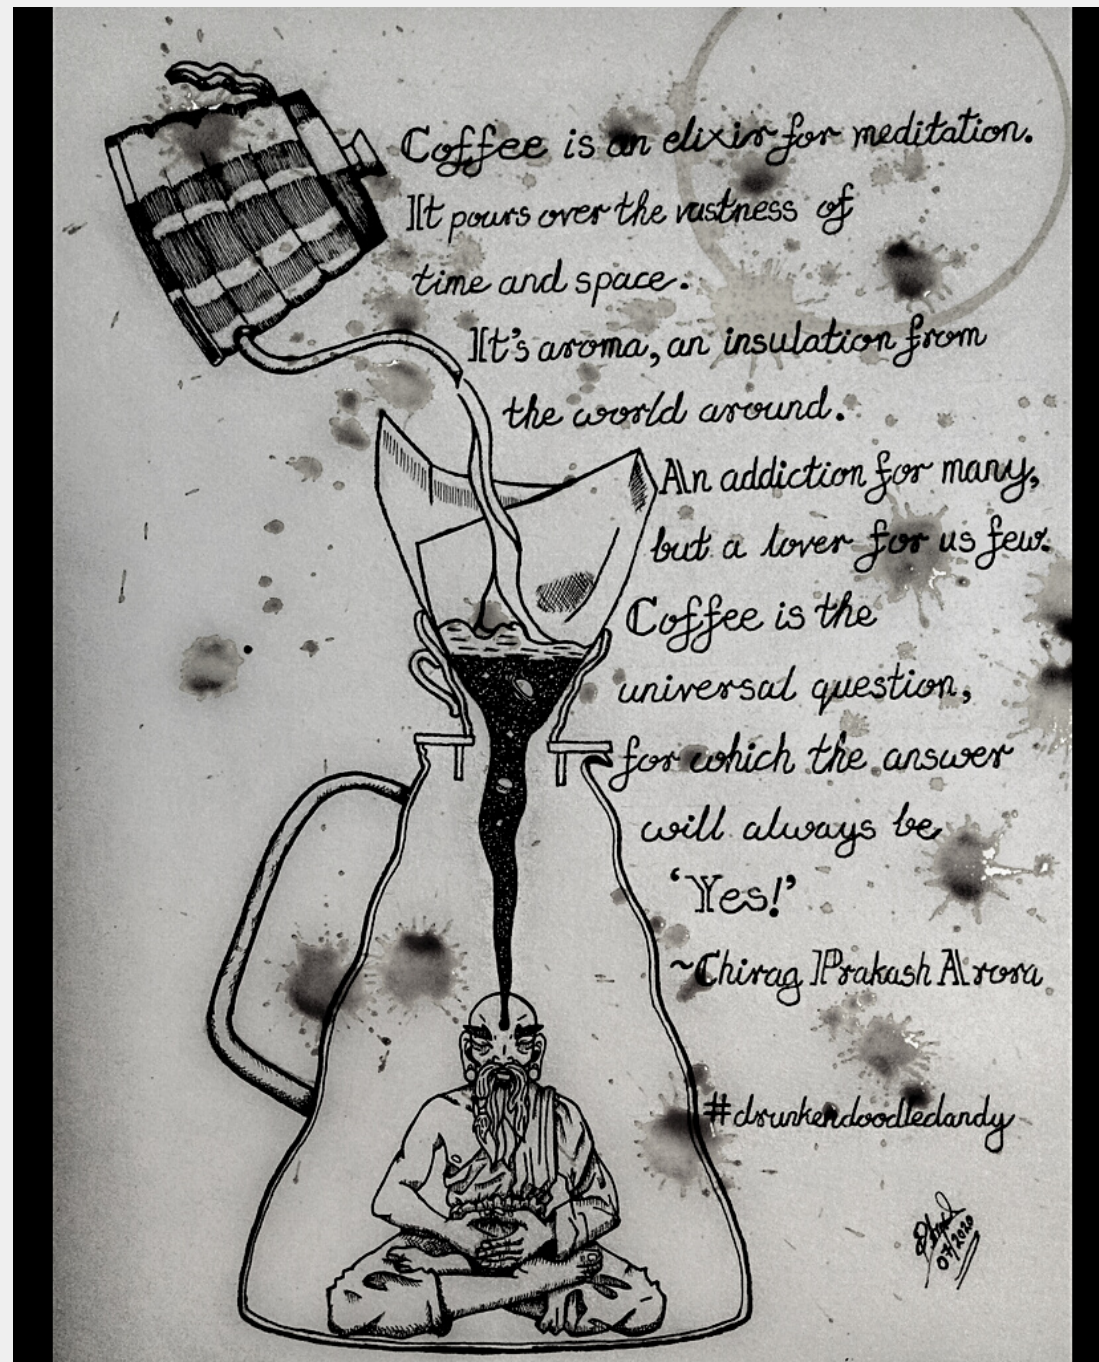 Coffee is an elixir for meditation.
It pours over the vastness of
time and space.
It's aroma, an insulation from
the world around.
An addiction for many,
but a lover for us few.
Coffee is the
universal question,
for which the answer
will always be
'Yes!'
~Chirag Prakash Arora
#drunkendoodledandy
07/2020